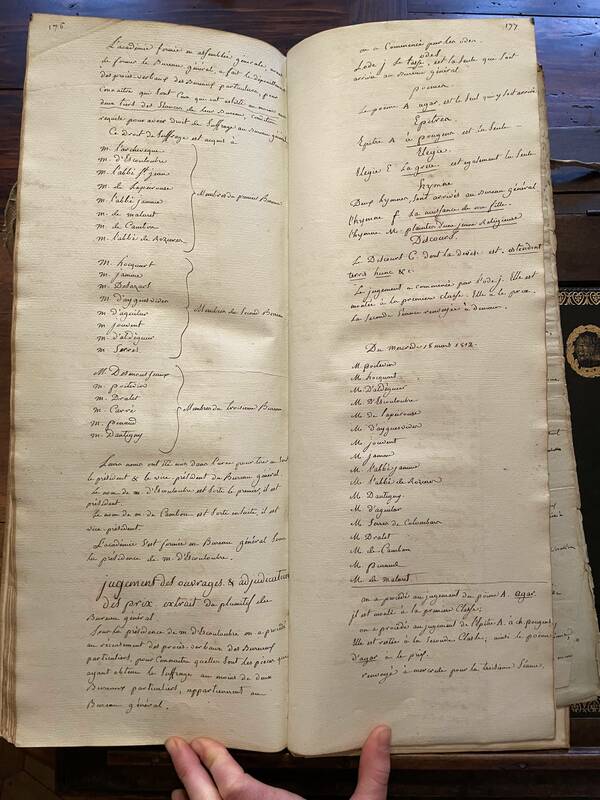 176
L'académie formée en assemblée générale, avant
de former le Bureau général, a fait le dépouillement
des procès-verbaux des Bureaux particuliers, pour
Connaitre qui sont Ceux qui ont assisté au moins aux
deux tiers des Séances de leurs Bureaux, Condition
requise pour avoir droit de suffrage au Bureau général
Ce droit de suffrage est acquis à
m. l'archevêque
m. d'Escouloubre
m. l'abbé St jean
m. de Lapeyrouse
m. l'abbé jamme
m. de malaret
m. de Cambon
m. l'abbé de Rozieres
Membres du premier Bureau
m. hocquart
m. jamme
m. d'ayguesvives
m. d'aguilar
m. jouvent
m. d'aldéguier
m. Serres
Membres du Second Bureau
M.
m. poitevin
m. Dralet
m. Carré
m. pinaud
m. Dantigny
Membres du troisieme Bureau
Leurs noms ont été mis dans l'urne pour tirer au sort
le président & le vice président du Bureau général.
Le nom de m. d'Escouloubre est sorti le premier, il est
président.
Le nom de m. de Cambon, est sorti ensuite, il est
vice-président
L'académie s'est formée en Bureau général sous
la présidence de m. d'Escouloubre.
jugement des ouvrages & adjudication
des prix, extrait du plumitif du
Bureau général
Sous la présidence de m d'Escouloubre on a procédé
au recensement des procès verbaux des Bureaux
particuliers, pour Connaitre quelles sont les pieces qui
ayant obtenu le suffrage au moins de deux
Bureaux particuliers, appartiennent au
Bureau général.
177
on a Commencé par les odes.
odes
L'ode j. est la seule qui soit
arrivée au Bureau général.
poemes
Le poème A agar est le seul qui y soit arrivé
Epitres
Epitre A à est la seule
Elegie
Elegie E La est egalement la seule
hymne
Deux hymnes sont arrivés au Bureau général
l'hymne f La naissance de ma fille.
l'hymne M. plaintes d'une jeune Religieuse
Discours.
Le Discours C dont la devise est. ostendent
terris hunc &c.
Le jugement a commencé par l'ode j. Elle est
montée à la premiere classe. Elle a le prix.
La seconde Séance renvoyée à demain.
Du mercredi 18 mars 1812.
M. poitevin
M. hocquart
M. d'aldéguier
M. d'Escouloubre
M. de Lapeyrouse
M. d'ayguesvives
M. jouvent
M. jamme
M. l'abbé jamme
M. l'abbé de Rozieres
M. Dantigny
M. d'aguilar
M. Serres de Colombars
M. Dralet
M. de Cambon
M. pinaud
M. de malaret
on a procédé au jugement du poème A. agar.
il est monté à la premiere Classe;
on a procédé au jugement de l'Epitre A.
Elle est restée à la seconde Classe, ainsi le poème
d'agar a le prix.
renvoyé à mercredi pour la troisieme Séance.